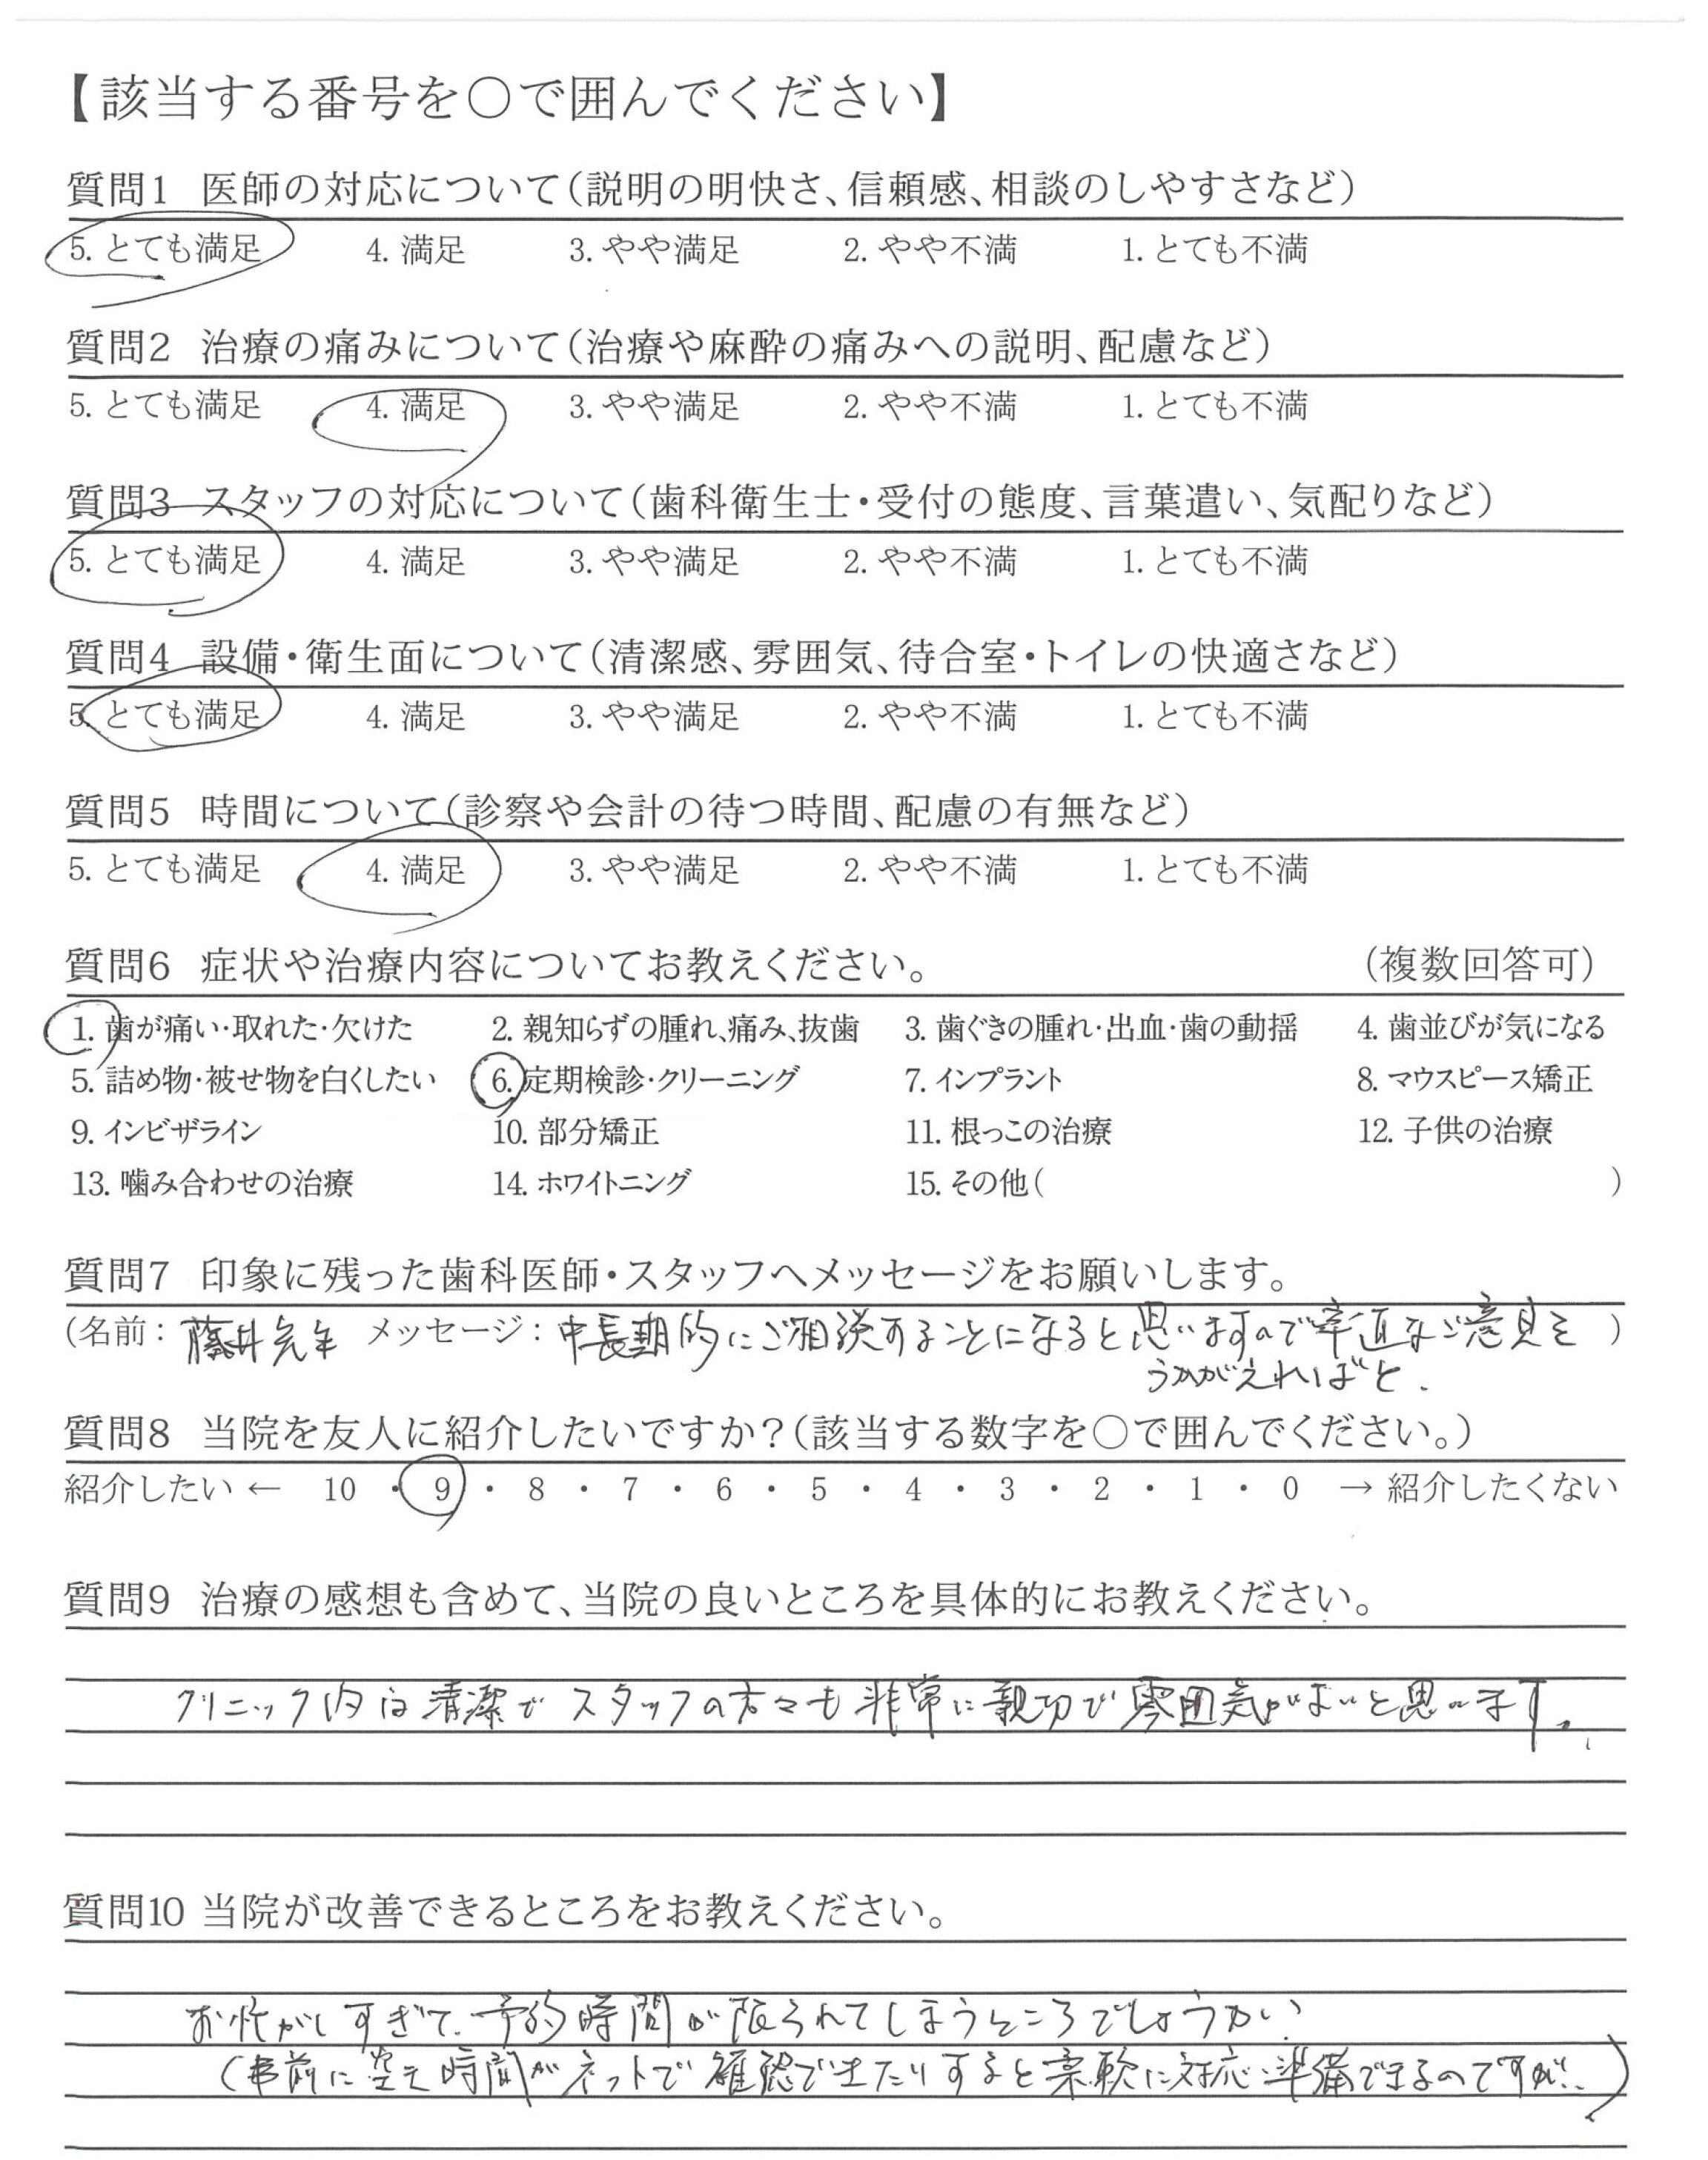 【該当する番号を○で囲んでください】
質問1 医師の対応について(説明の明快さ、信頼感、相談のしやすさなど)
5. とても満足 4. 満足 3. やや満足 2. やや不満 1. とても不満
質問2 治療の痛みについて(治療や麻酔の痛みへの説明、配慮など)
5. とても満足 4. 満足 3. やや満足 2. やや不満 1. とても不満
質問3 スタッフの対応について(歯科衛生士・受付の態度、言葉遣い、気配りなど)
5. とても満足 4. 満足 3. やや満足 2. やや不満 1. とても不満
質問4 設備・衛生面について(清潔感、雰囲気、待合室・トイレの快適さなど)
5. とても満足 4. 満足 3. やや満足 2. やや不満 1. とても不満
質問5 時間について(診察や会計の待つ時間、配慮の有無など)
5. とても満足 4. 満足 3. やや満足 2. やや不満 1. とても不満
質問6 症状や治療内容についてお教えください。 (複数回答可)
1. 歯が痛い・取れた・欠けた 2. 親知らずの腫れ、痛み、抜歯 3. 歯ぐきの腫れ・出血・歯の動揺 4. 歯並びが気になる
5. 詰め物・被せ物を白くしたい 6. 定期検診・クリーニング 7. インプラント 8. マウスピース矯正
9. インビザライン 10. 部分矯正 11. 根っこの治療 12. 子供の治療
13. 噛み合わせの治療 14. ホワイトニング 15. その他( )
質問7 印象に残った歯科医師・スタッフへメッセージをお願いします。
(名前: 藤井先生 メッセージ: 中長期的にご相談することになると思いますので率直なご意見を )
うかがえればと.
質問8 当院を友人に紹介したいですか?(該当する数字を○で囲んでください。)
紹介したい ← 10 ・ 9 ・ 8 ・ 7 ・ 6 ・ 5 ・ 4 ・ 3 ・ 2 ・ 1 ・ 0 → 紹介したくない
質問9 治療の感想も含めて、当院の良いところを具体的にお教えください。
クリニック内は清潔でスタッフの方々も非常に親切で雰囲気がよいと思います。
質問10 当院が改善できるところをお教えください。
お忙がしすぎて、予約時間が限られてしまうところでしょうかい
(事前に空き時間がネットで確認できたりすると柔軟に対応準備できるのですが..)